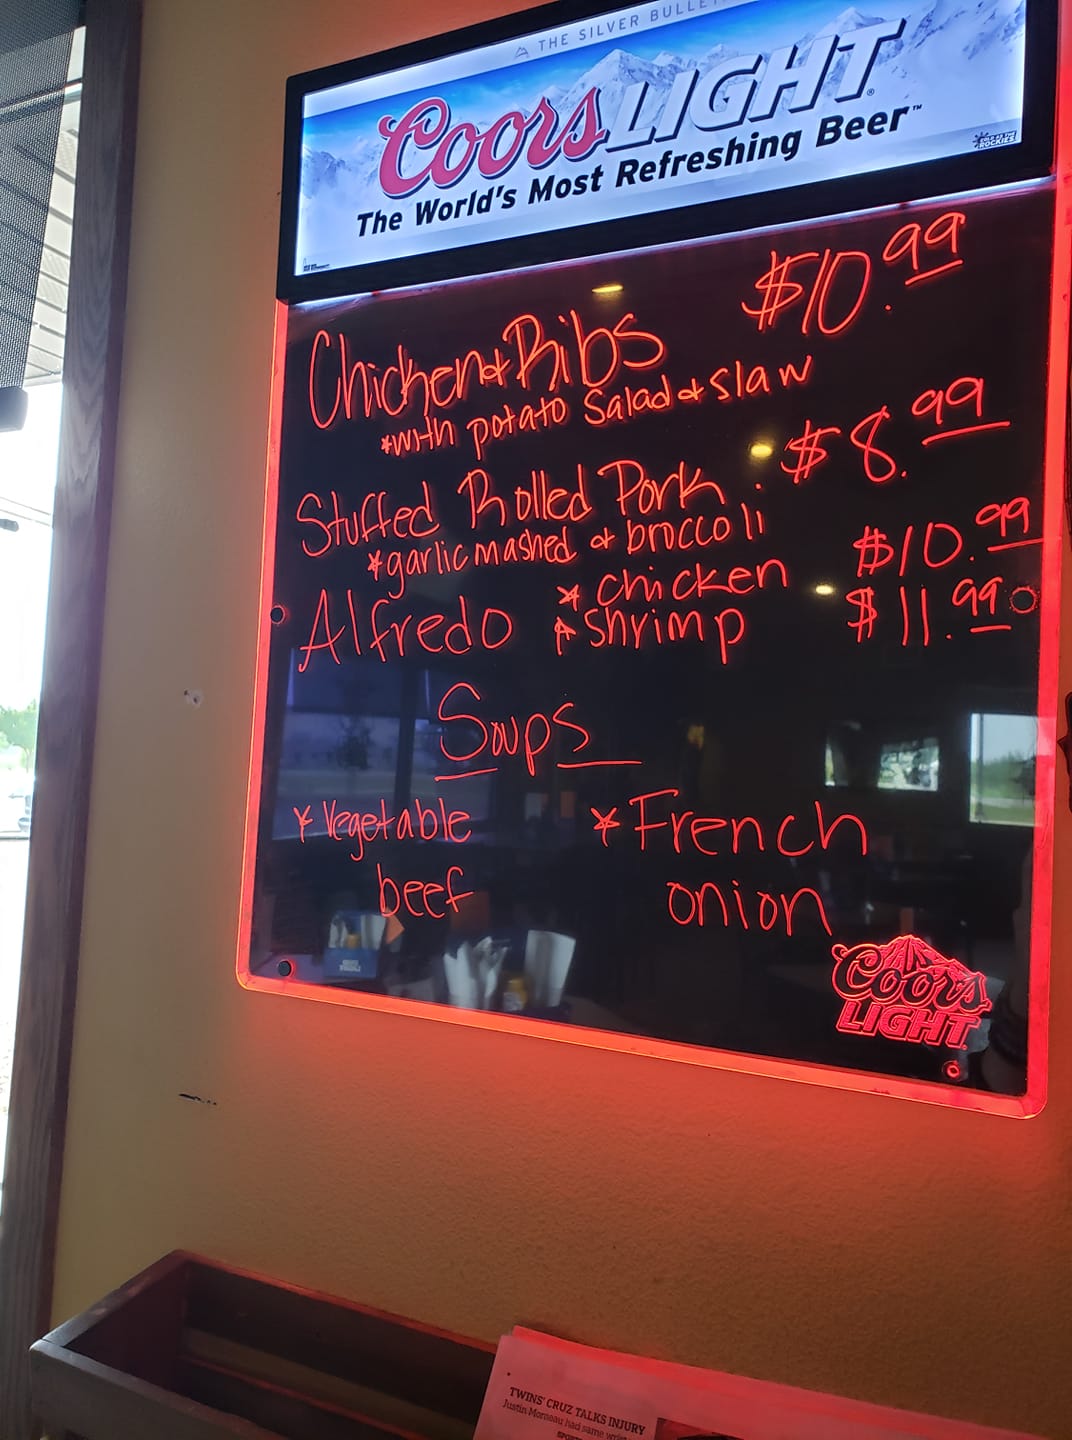 THE SILVER BULLET
Coors LIGHT
The World's Most Refreshing Beer™
Chicken & Ribs $10.99
*with potato salad & slaw
Stuffed Rolled Pork . $8.99
*garlic mashed & broccoli
Alfredo * chicken $10.99
* shrimp $11.99
Soups
* Vegetable beef
* French onion
Coors
LIGHT
TWINS' CRUZ TALKS INJURY
Justin Morneau had same